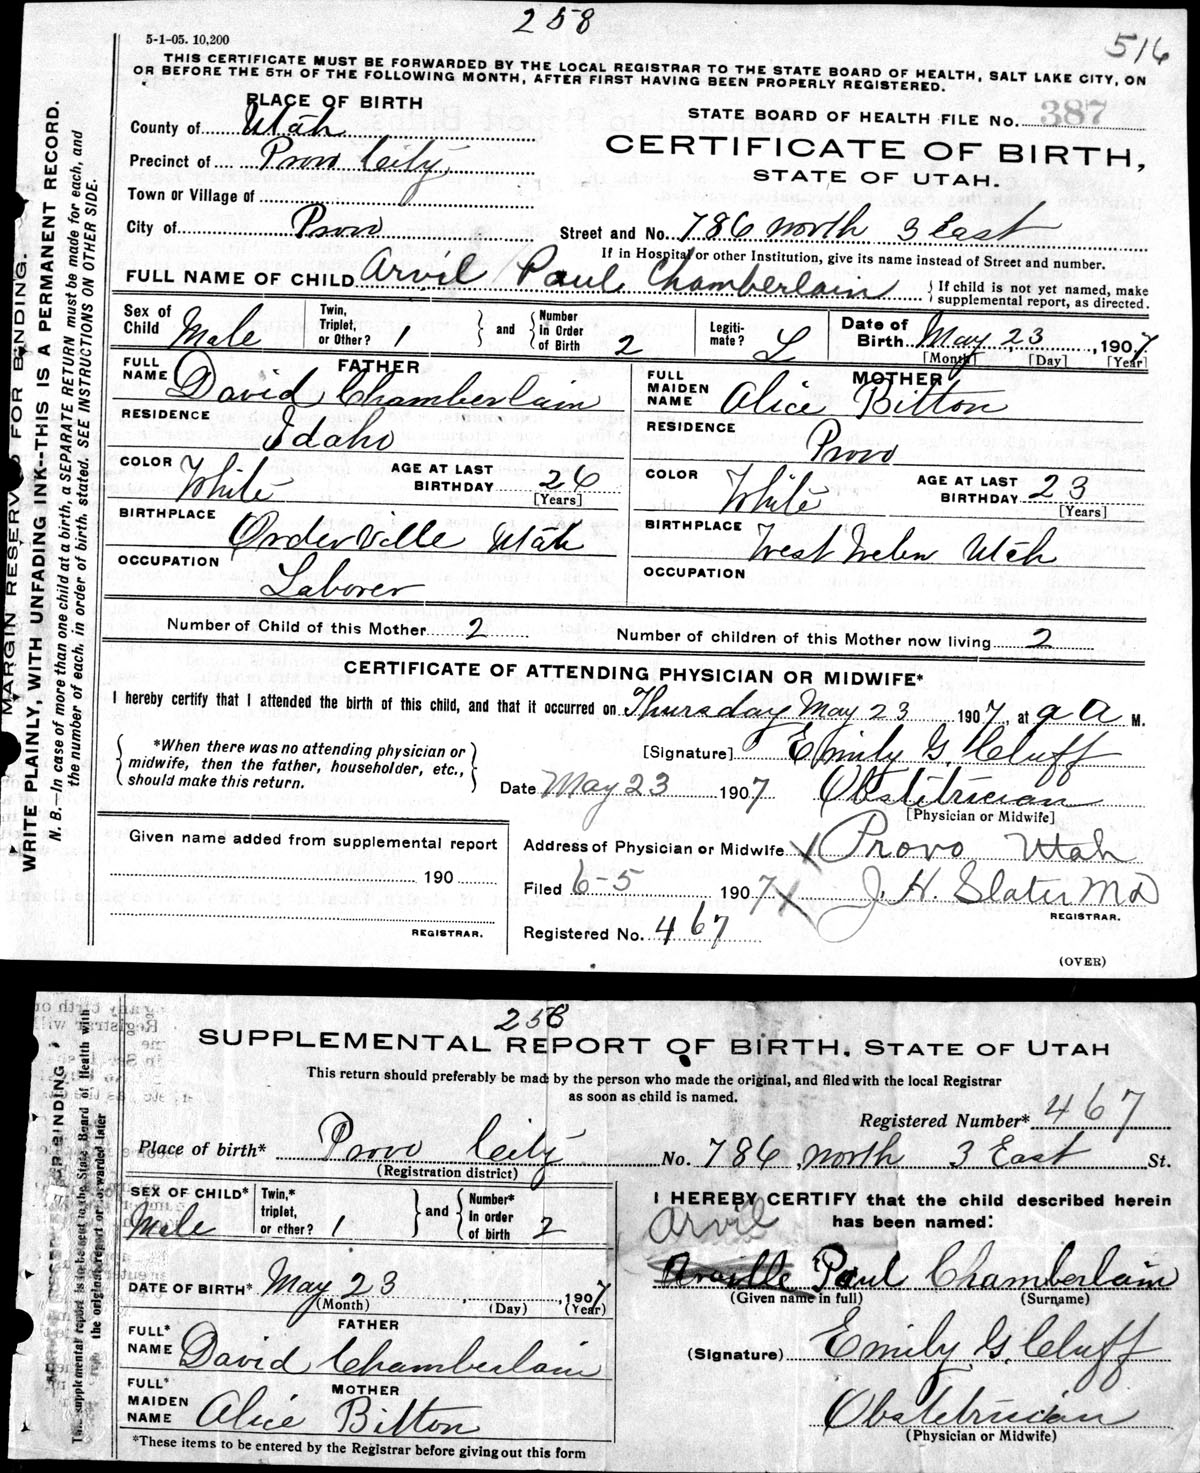 258
516
5-1-05. 10,200
THIS CERTIFICATE MUST BE FORWARDED BY THE LOCAL REGISTRAR TO THE STATE BOARD OF HEALTH, SALT LAKE CITY, ON
OR BEFORE THE 5TH OF THE FOLLOWING MONTH, AFTER FIRST HAVING BEEN PROPERLY REGISTERED.
MARGIN RESERVED FOR BINDING.
WRITE PLAINLY, WITH UNFADING INK--THIS IS A PERMANENT RECORD.
N. B.—In case of more than one child at a birth, a SEPARATE RETURN must be made for each, and
the number of each, in order of birth, stated. SEE INSTRUCTIONS ON OTHER SIDE.
PLACE OF BIRTH
County of Utah
Precinct of Provo City
Town or Village of
City of Provo
STATE BOARD OF HEALTH FILE No. 387
CERTIFICATE OF BIRTH,
STATE OF UTAH.
Street and No. 786 North 3 East
If in Hospital or other Institution, give its name instead of Street and number.
FULL NAME OF CHILD Arvil Paul Chamberlain
If child is not yet named, make
supplemental report, as directed.
Sex of Child Male
Twin, Triplet, or Other? 1
and
Number in Order of Birth 2
Legiti-mate? L
Date of Birth May 23, 1907
[Month] [Day] [Year]
FATHER
FULL NAME David Chamberlain
RESIDENCE Idaho
COLOR White
AGE AT LAST BIRTHDAY 26
[Years]
BIRTHPLACE Orderville Utah
OCCUPATION Laborer
MOTHER
FULL MAIDEN NAME Alice Bitton
RESIDENCE Provo
COLOR White
AGE AT LAST BIRTHDAY 23
[Years]
BIRTHPLACE West Weber Utah
OCCUPATION
Number of Child of this Mother 2
Number of children of this Mother now living 2
CERTIFICATE OF ATTENDING PHYSICIAN OR MIDWIFE*
I hereby certify that I attended the birth of this child, and that it occurred on Thursday May 23 1907, at 9 A M.
*When there was no attending physician or
midwife, then the father, householder, etc.,
should make this return.
[Signature] Emily G. Cluff
Date May 23 1907 Obstitrician
[Physician or Midwife]
Given name added from supplemental report
190
REGISTRAR.
Address of Physician or Midwife Provo Utah
Filed 6-5 1907 J. H. Slater MD
REGISTRAR.
Registered No. 467
(OVER)
258
SUPPLEMENTAL REPORT OF BIRTH, STATE OF UTAH
This return should preferably be made by the person who made the original, and filed with the local Registrar
as soon as child is named.
Registered Number* 467
Place of birth* Provo City No. 786 North 3 East St.
(Registration district)
SEX OF CHILD* Male
Twin,* triplet, or other? 1
and
Number* in order of birth 2
DATE OF BIRTH* May 23, 1907
(Month) (Day) (Year)
FATHER
FULL* NAME David Chamberlain
MOTHER
FULL* MAIDEN NAME Alice Bitton
*These items to be entered by the Registrar before giving out this form
I HEREBY CERTIFY that the child described herein
has been named:
Arvil
Paul Chamberlain
(Given name in full) (Surname)
(Signature) Emily G. Cluff
Obstitrician
(Physician or Midwife)